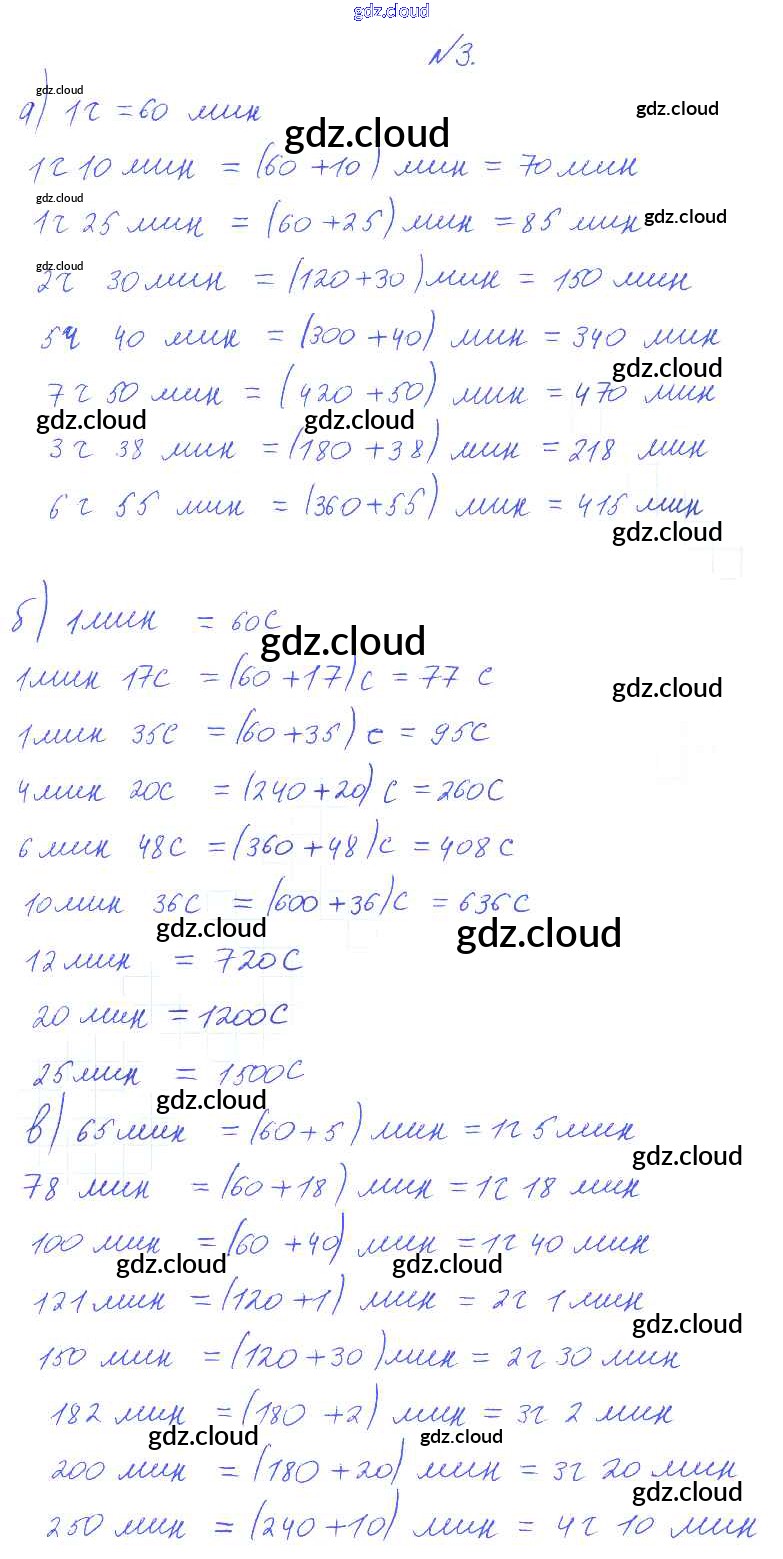 gdz.cloud
№3.
gdz.cloud
а) 1ч = 60 мин
gdz.cloud
gdz.cloud
1ч 10 мин = (60 + 10) мин = 70 мин
gdz.cloud
1ч 25 мин = (60 + 25) мин = 85 мин
gdz.cloud
gdz.cloud
2ч 30 мин = (120 + 30) мин = 150 мин
5ч 40 мин = (300 + 40) мин = 340 мин
gdz.cloud
7ч 50 мин = (420 + 50) мин = 470 мин
gdz.cloud gdz.cloud
3ч 38 мин = (180 + 38) мин = 218 мин
6ч 55 мин = (360 + 55) мин = 415 мин
gdz.cloud
б) 1 мин = 60 с
gdz.cloud
1 мин 17 с = (60 + 17) с = 77 с
gdz.cloud
1 мин 35 с = (60 + 35) с = 95 с
4 мин 20 с = (240 + 20) с = 260 с
6 мин 48 с = (360 + 48) с = 408 с
10 мин 36 с = (600 + 36) с = 636 с
gdz.cloud gdz.cloud
12 мин = 720 с
20 мин = 1200 с
25 мин = 1500 с
gdz.cloud
в) 65 мин = (60 + 5) мин = 1ч 5 мин
gdz.cloud
78 мин = (60 + 18) мин = 1ч 18 мин
100 мин = (60 + 40) мин = 1ч 40 мин
gdz.cloud gdz.cloud
121 мин = (120 + 1) мин = 2ч 1 мин
gdz.cloud
150 мин = (120 + 30) мин = 2ч 30 мин
182 мин = (180 + 2) мин = 3ч 2 мин
gdz.cloud gdz.cloud
200 мин = (180 + 20) мин = 3ч 20 мин
gdz.cloud
250 мин = (240 + 10) мин = 4ч 10 мин